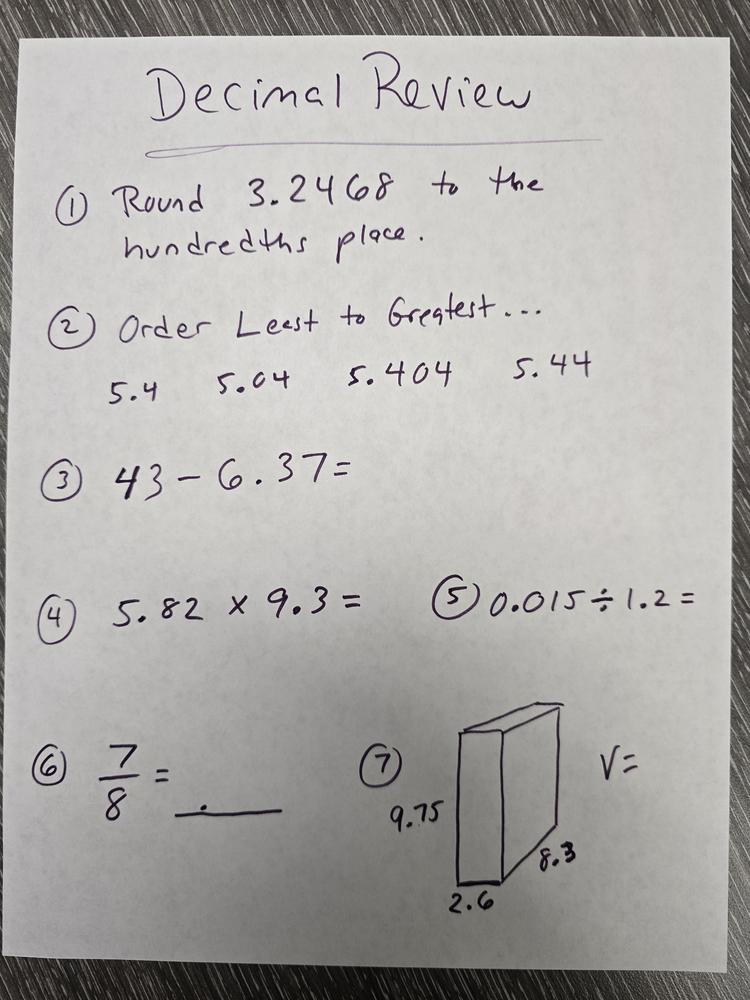 Decimal Review
① Round 3.2468 to the
hundredths place.
② Order Least to Greatest...
5.4 5.04 5.404 5.44
③ 43 - 6.37 =
④ 5.82 × 9.3 = ⑤ 0.015 ÷ 1.2 =
⑥ 7/8 = __.____ ⑦ V=
9.75
8.3
2.6